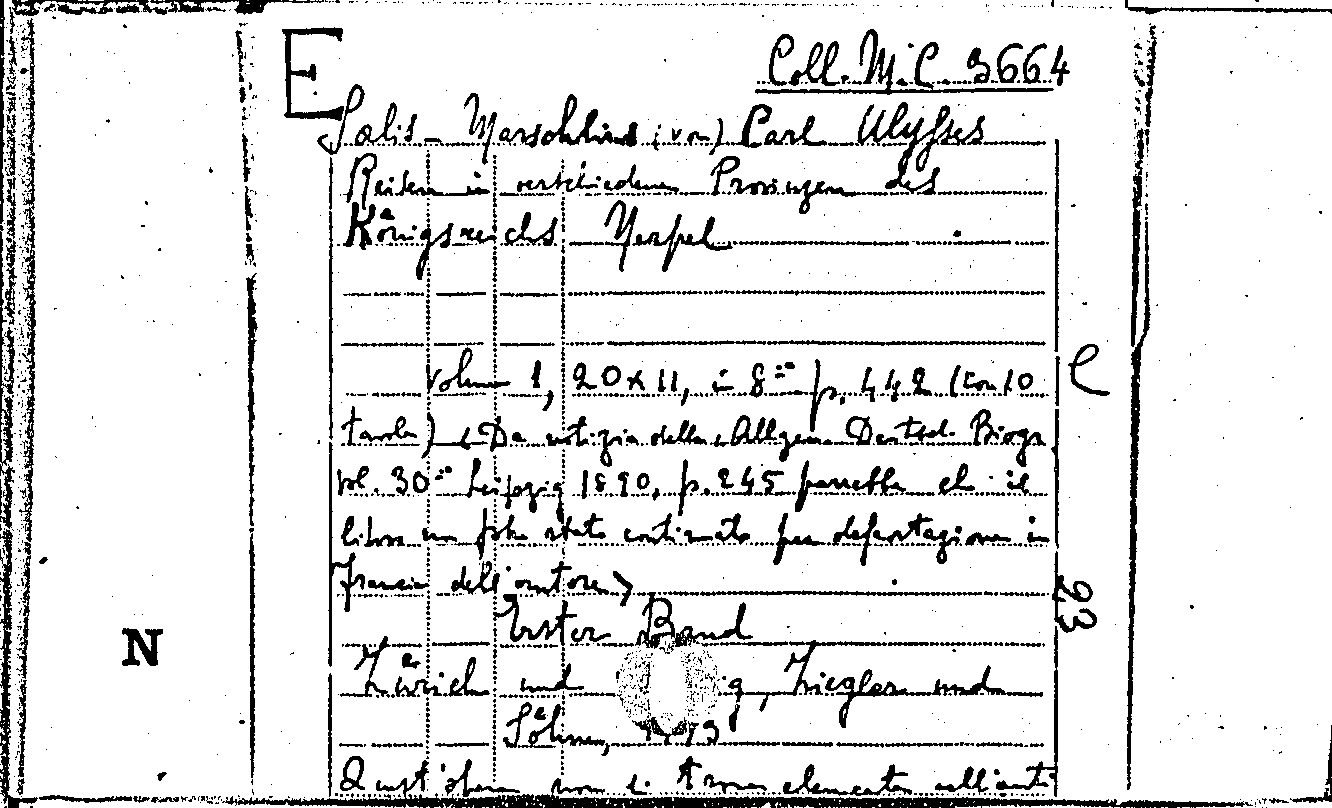 E
Coll. M.C. 3664
Salis - Marschlins (von) Carl Ulysses
Reisen in verschiedenen Provinzen des
Königsreichs Neapel
volume 1, 20x11, in 8° p. 442 (con 10
C
tavole) (Da notizia della Allgem. Deutsch. Biogr.
vol. 30° Leipzig 1890, p. 245 che il
libro non stato continuato per deportazione in
Francia dell'autore)
23
Erster Band
N
Zürich und g, Ziegler und
Söhne,
Quest'opera non si trova